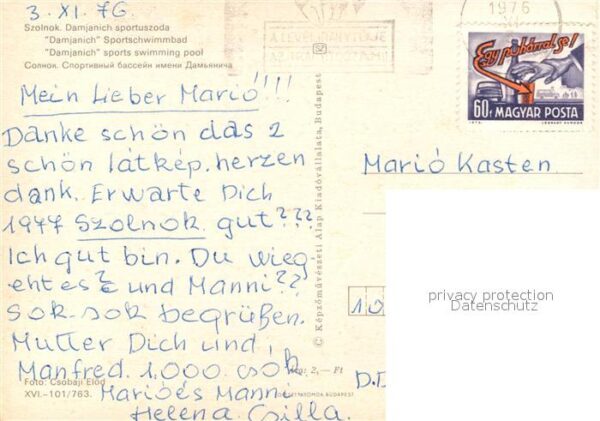 3. XI. 76.
Szolnok. Damjanich sportuszoda
"Damjanich" Sportschwimmbad
"Damjanich" sports swimming pool
Солнок. Спортивный бассейн имени Дамьянича
1976
Egy pohárral se!
60f MAGYAR POSTA
Mein Lieber Marió!!!
Danke schön das 2
schön látkép. herzen
dank. Erwarte Dich
1977 Szolnok. gut???
Ich gut bin. Du wieg-
eht es? und Manni??
sok-sok begrüßen.
Mutter Dich und
Manfred. 1.000. csók
Marióés Manni
Helena. Csilla.
Marió Kasten
10
D.D
© Képzőművészeti Alap Kiadóvállalata, Budapest
Ára: 2,— Ft
Foto: Csobaji Előd
XVI.-101/763.
privacy protection
Datenschutz